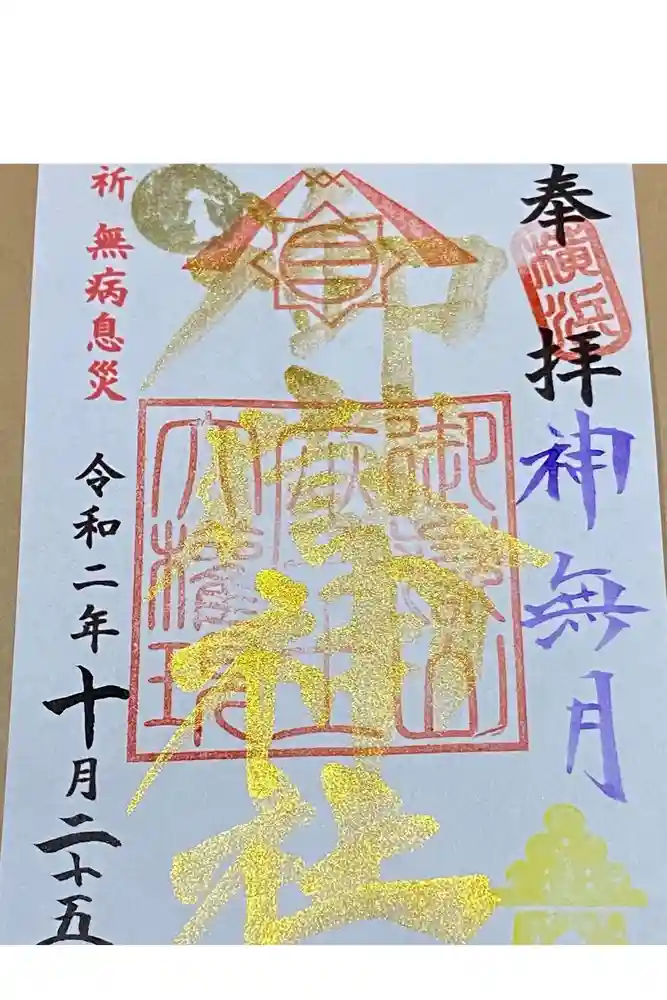 奉拝
横浜
神無月
御嶽神社
御嶽山
大権現
祈 無病息災
令和二年十月二十五